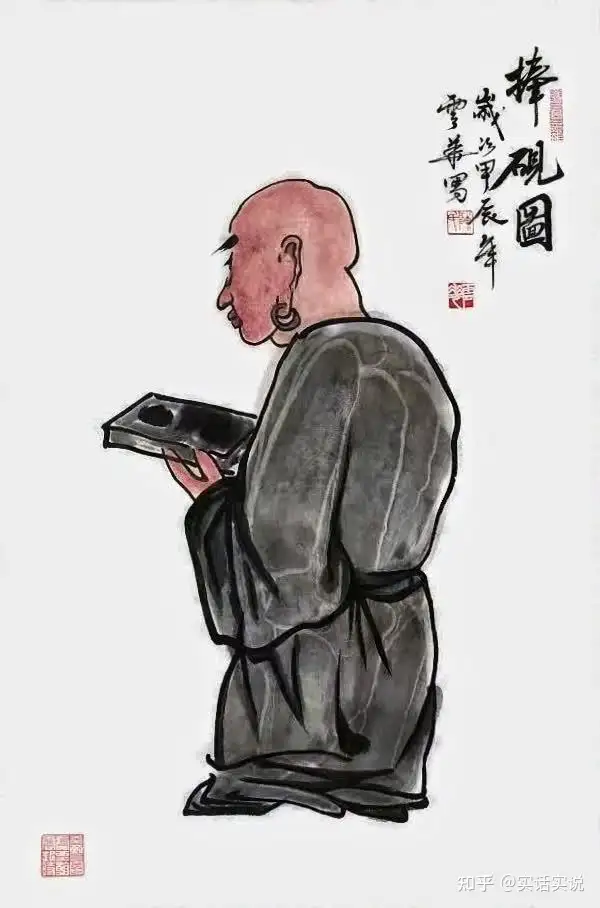 捧硯圖
歲次甲辰年
雲華寫
知乎 @实话实说